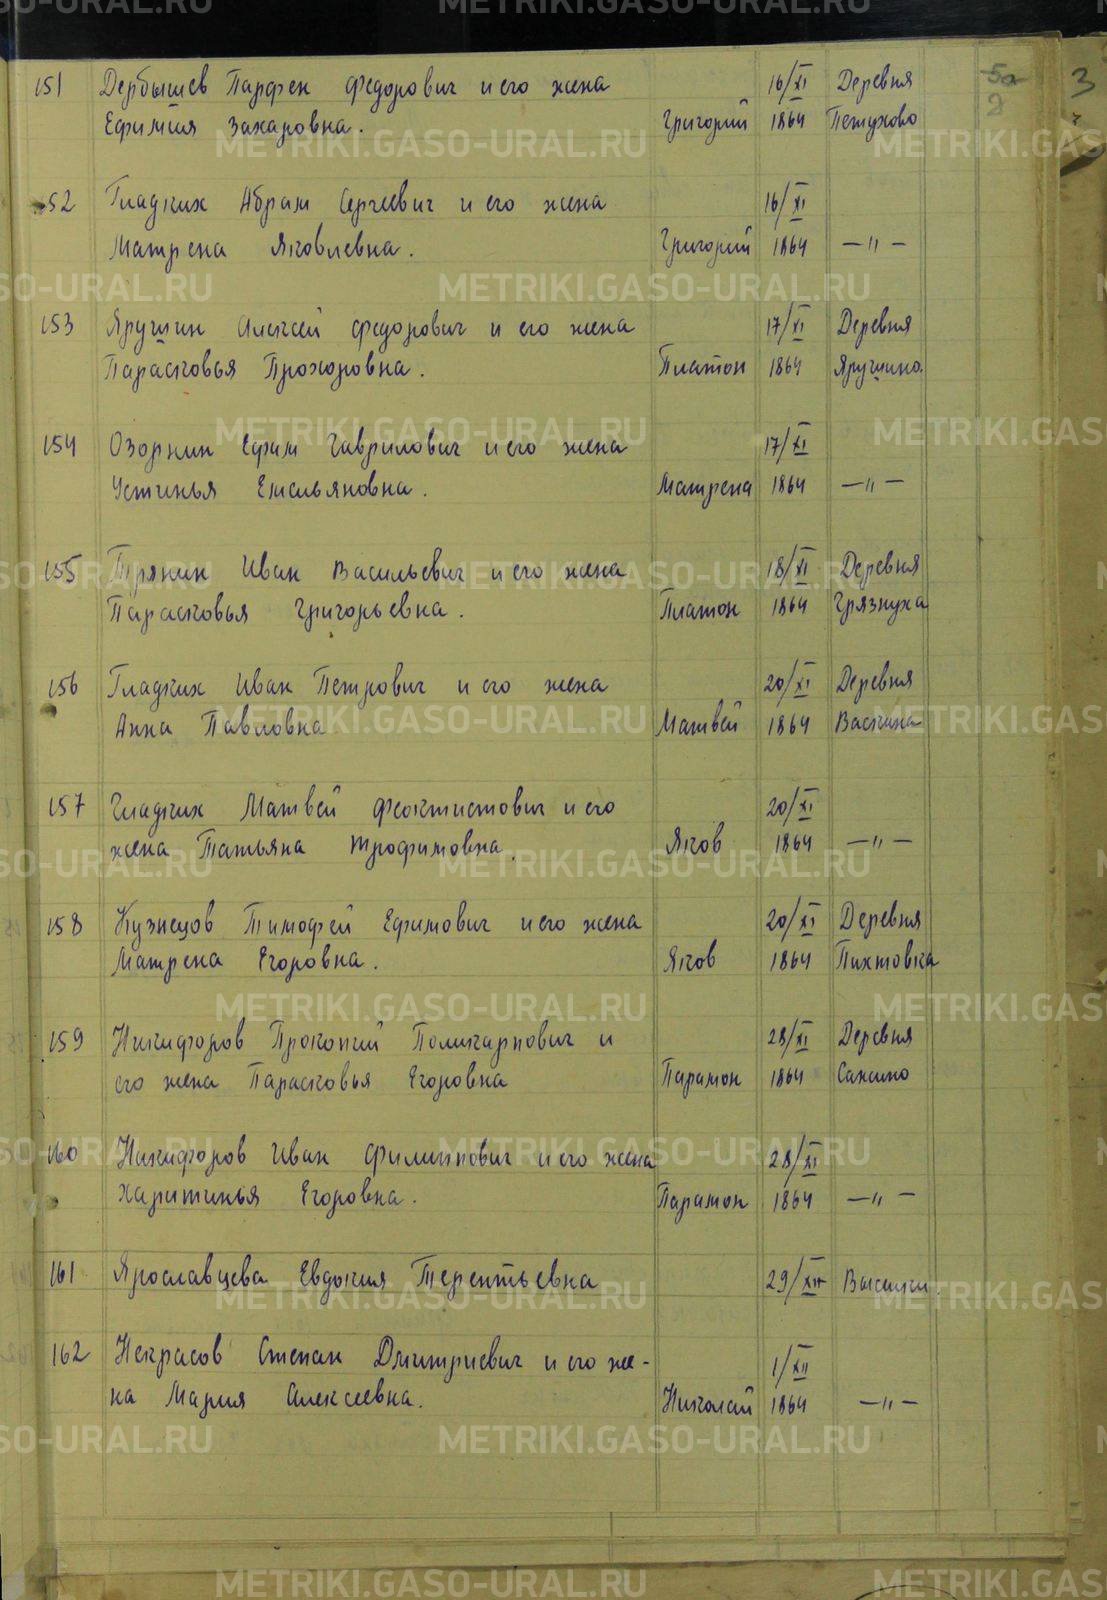 151 Дербышев Парфен Федорович и его жена 16/XI Деревня 5а 3
Ефимия Захаровна. Григорий 1864 Петухово 2
152 Гладких Абрам Сергеевич и его жена 16/XI
Матрена Яковлевна. Григорий 1864 —"—
153 Ярушин Алексей Федорович и его жена 17/XI Деревня
Парасковья Прохоровна. Платон 1864 Ярушино.
154 Озорнин Ефим Гаврилович и его жена 17/XI
Устинья Емельяновна. Матрена 1864 —"—
155 Тряпин Иван Васильевич и его жена 18/XI Деревня
Парасковья Григорьевна. Платон 1864 Грязнуха
156 Гладких Иван Петрович и его жена 20/XI Деревня
Анна Павловна Матвей 1864 Васкина
157 Гладких Матвей Феоктистович и его 20/XI
жена Татьяна Трофимовна. Яков 1864 —"—
158 Кузнецов Тимофей Ефимович и его жена 20/XI Деревня
Матрена Егоровна. Яков 1864 Пихтовка
159 Никифоров Прокопий Поликарпович и 28/XI Деревня
его жена Парасковья Егоровна Парамон 1864 Саксино
160 Никифоров Иван Филиппович и его жена 28/XI
Харитинья Егоровна. Парамон 1864 —"—
161 Ярославцева Евдокия Терентьевна 29/XII
162 Некрасов Степан Дмитриевич и его же- 1/XII
на Мария Алексеевна. Николай 1864 —"—
METRIKI.GASO-URAL.RU